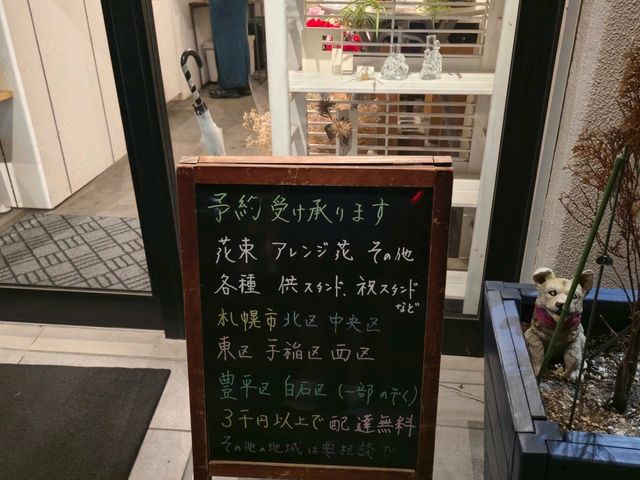 予約受け承ります
花束 アレンジ花 その他
各種 供スタンド、祝スタンド
など
札幌市 北区 中央区
東区 手稲区 西区
豊平区 白石区 (一部のぞく)
3千円以上で配達無料
その他の地域は要相談で